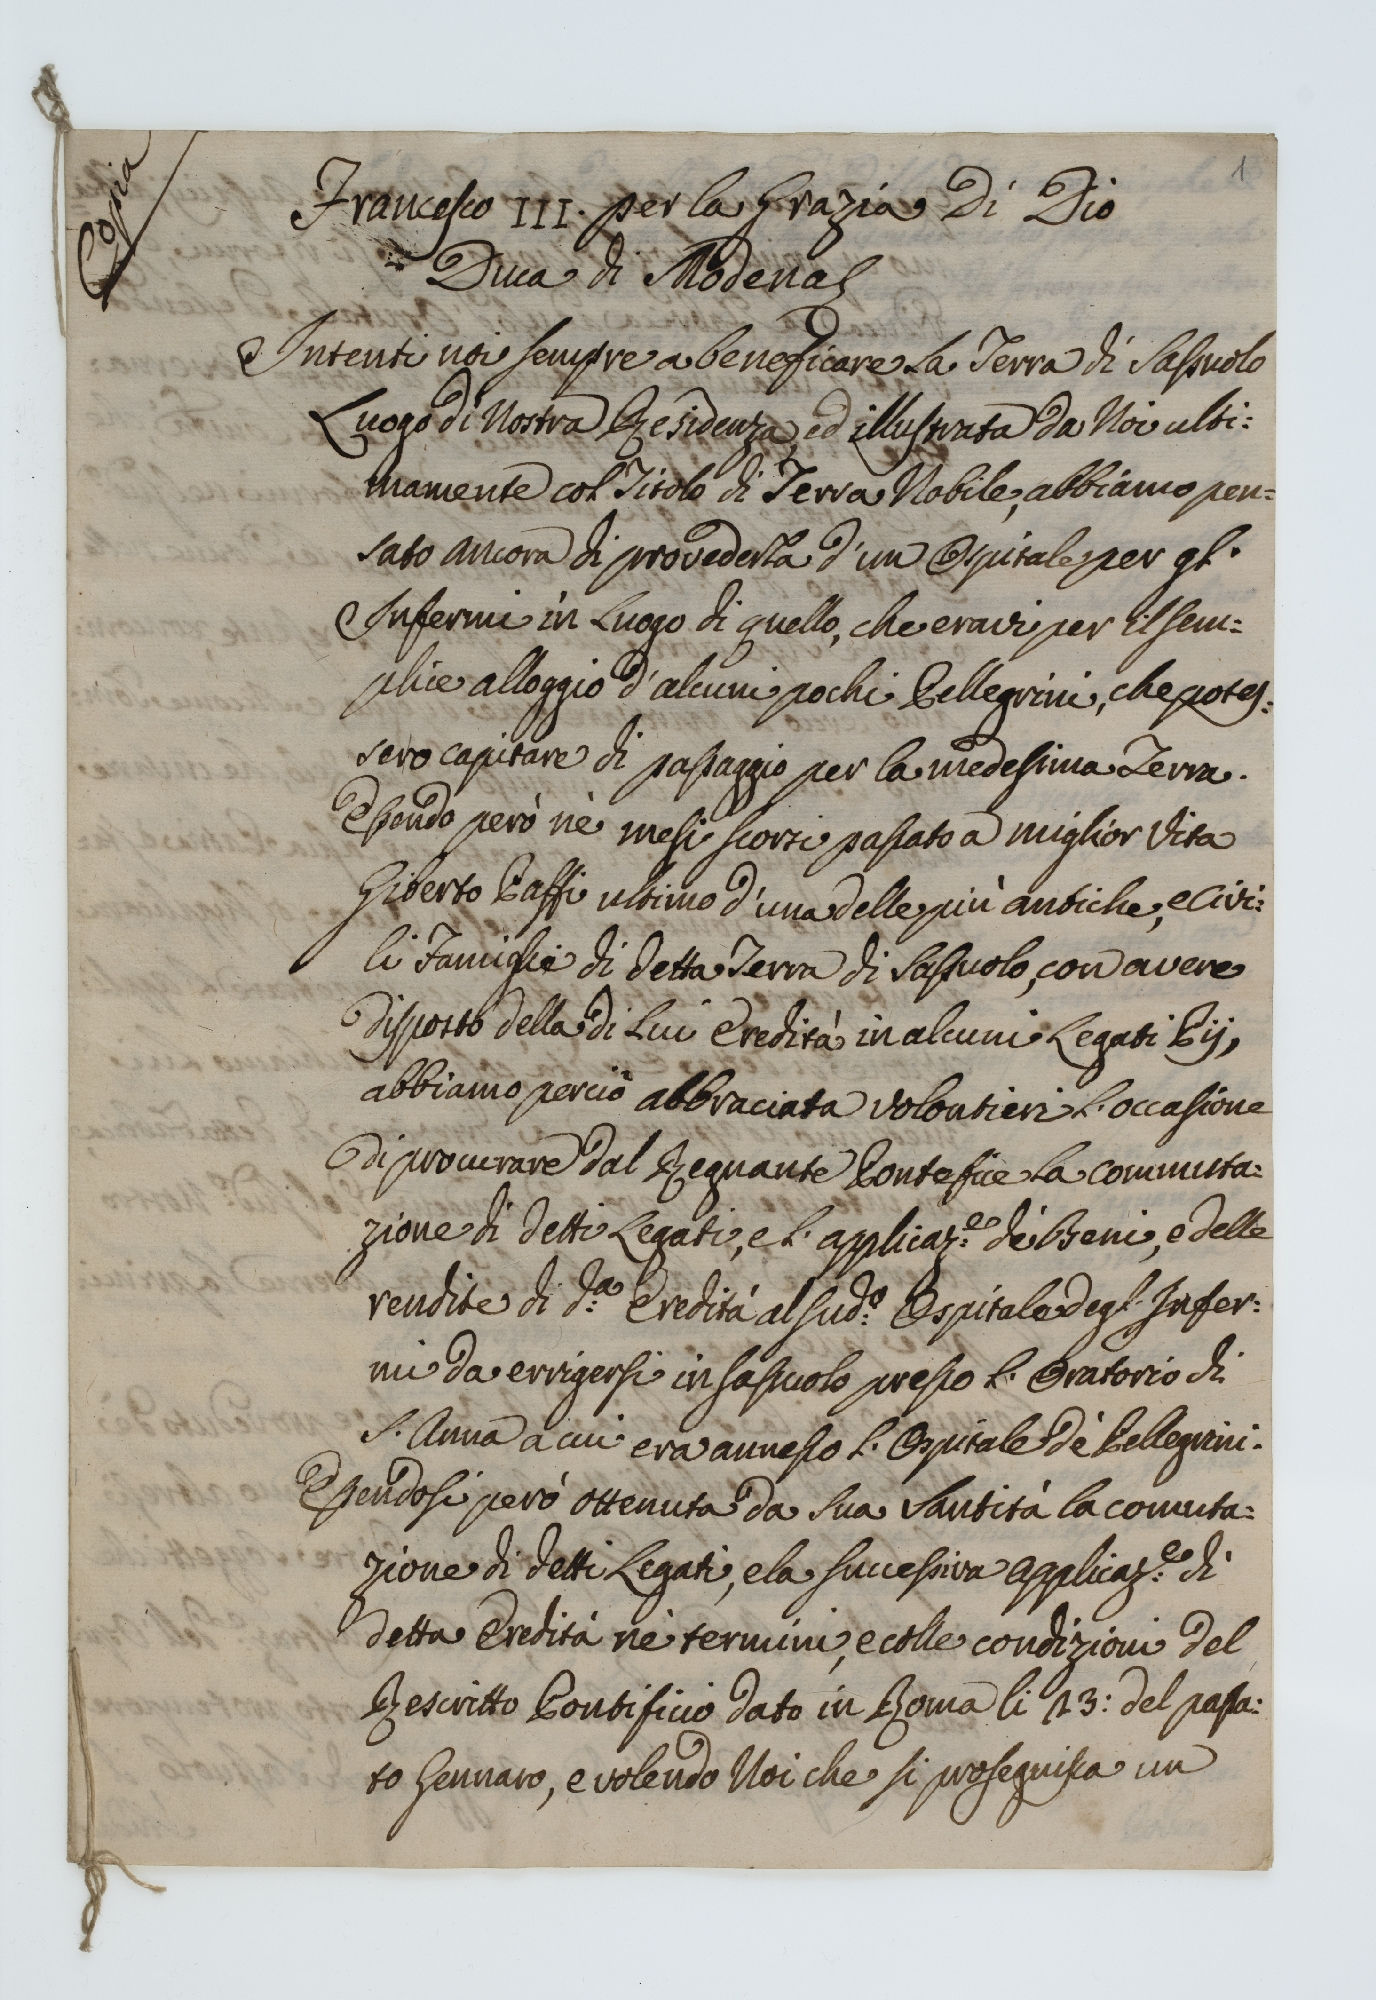 Copia
1
Francesco III. per la Grazia Di Dio
Duca di Modena
Intenti noi sempre a beneficare La Terra di Sassuolo
Luogo di Nostra Residenza, ed illustrata da Noi ulti:
mamente col Titolo di Terra Nobile, abbiamo pen=
sato ancora di provederla d'un Ospitale per gl.
Infermi in Luogo di quello, che eravi per il sem=
plice alloggio d'alcuni pochi Pellegrini, che potes:
sero capitare di passaggio per la medesima Terra.
Essendo però nè mesi scorsi passato a miglior Vita
Giberto Baffi ultimo d'una delle più antiche, e Civi:
li Famiglie di detta Terra di Sassuolo, con avere
disposto della di Lui Eredità in alcuni Legati Pij,
abbiamo perciò abbraciata volontieri l'occasione
di procurare dal Regnante Pontefice La commuta=
zione di detti Legati, e l'applicaz:e dè Beni, e delle
rendite di d:a Eredità al sud:o Ospitale degl. Infer:
mi da errigersi in Sassuolo presso l'Oratorio di
S. Anna a cui era annesso l'Ospitale dè Pellegrini.
Essendosi però ottenuta da Sua Santità la comuta=
zione di detti Legati, e la successiva applicaz:e di
detta Eredità nè termini, e colle condizioni del
Rescritto Pontificio dato in Roma li 13: del passa:
to Gennaro, e volendo Noi che si proseguisca un